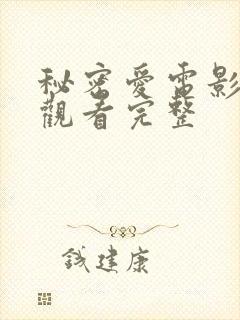 秘密愛電影
觀看完整
钱建康